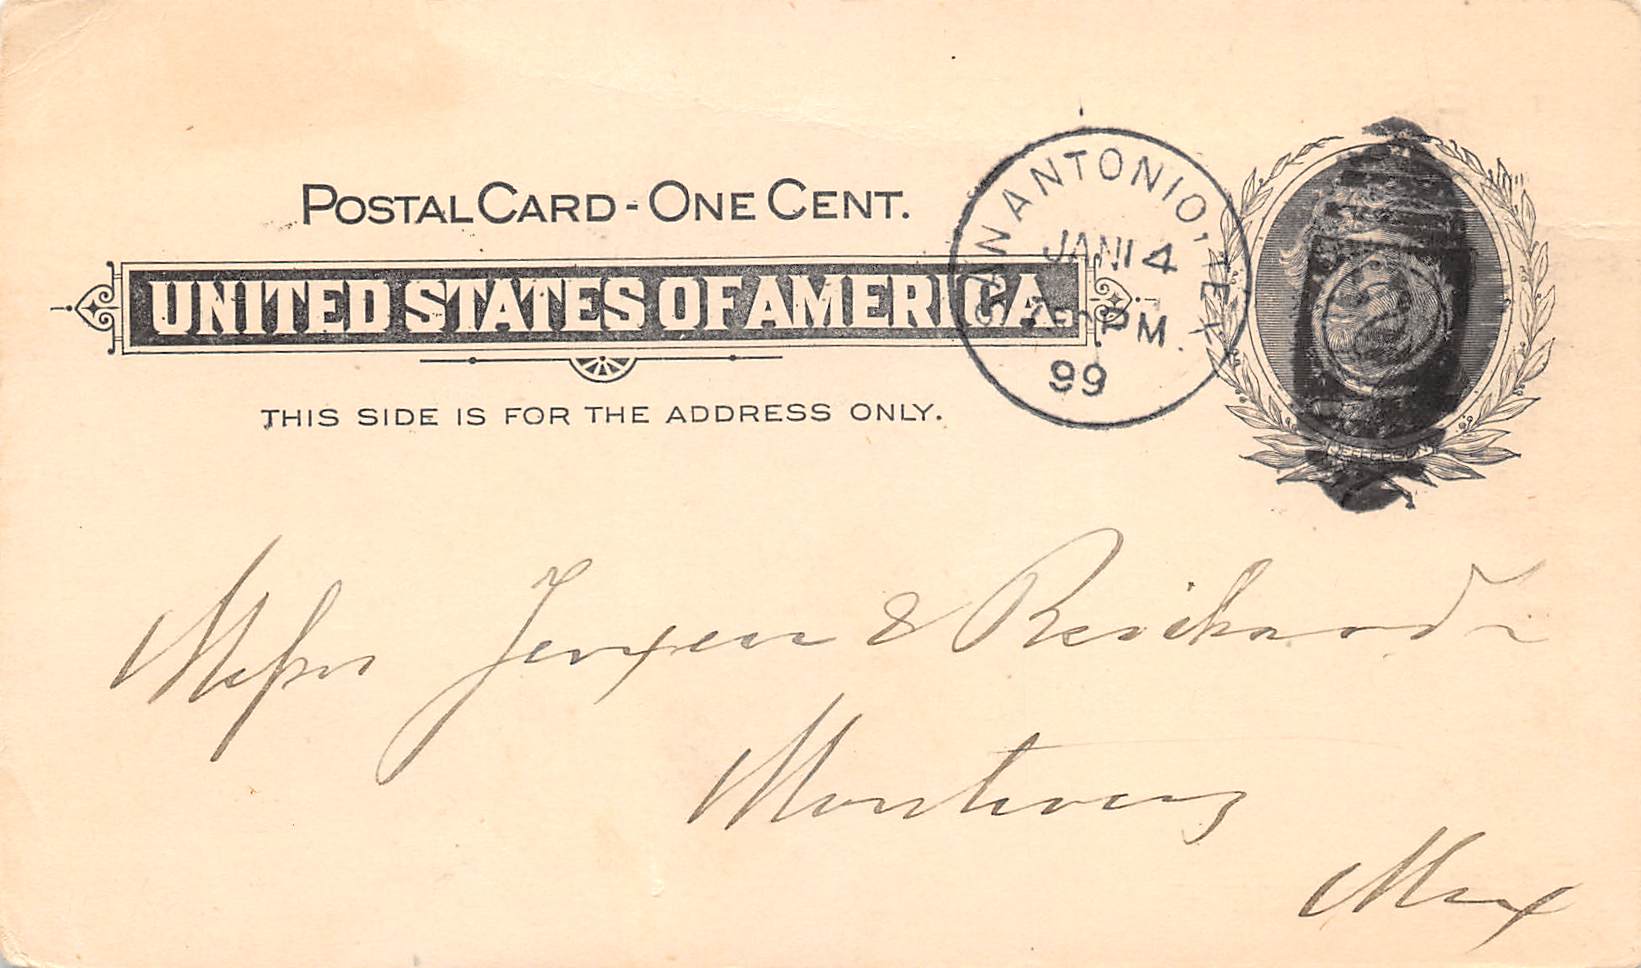 POSTAL CARD - ONE CENT.
UNITED STATES OF AMERICA
THIS SIDE IS FOR THE ADDRESS ONLY.
SAN ANTONIO, TEX.
JAN 14
PM.
99
JEFFERSON
Messrs & Reichardt
Monterey
Mex